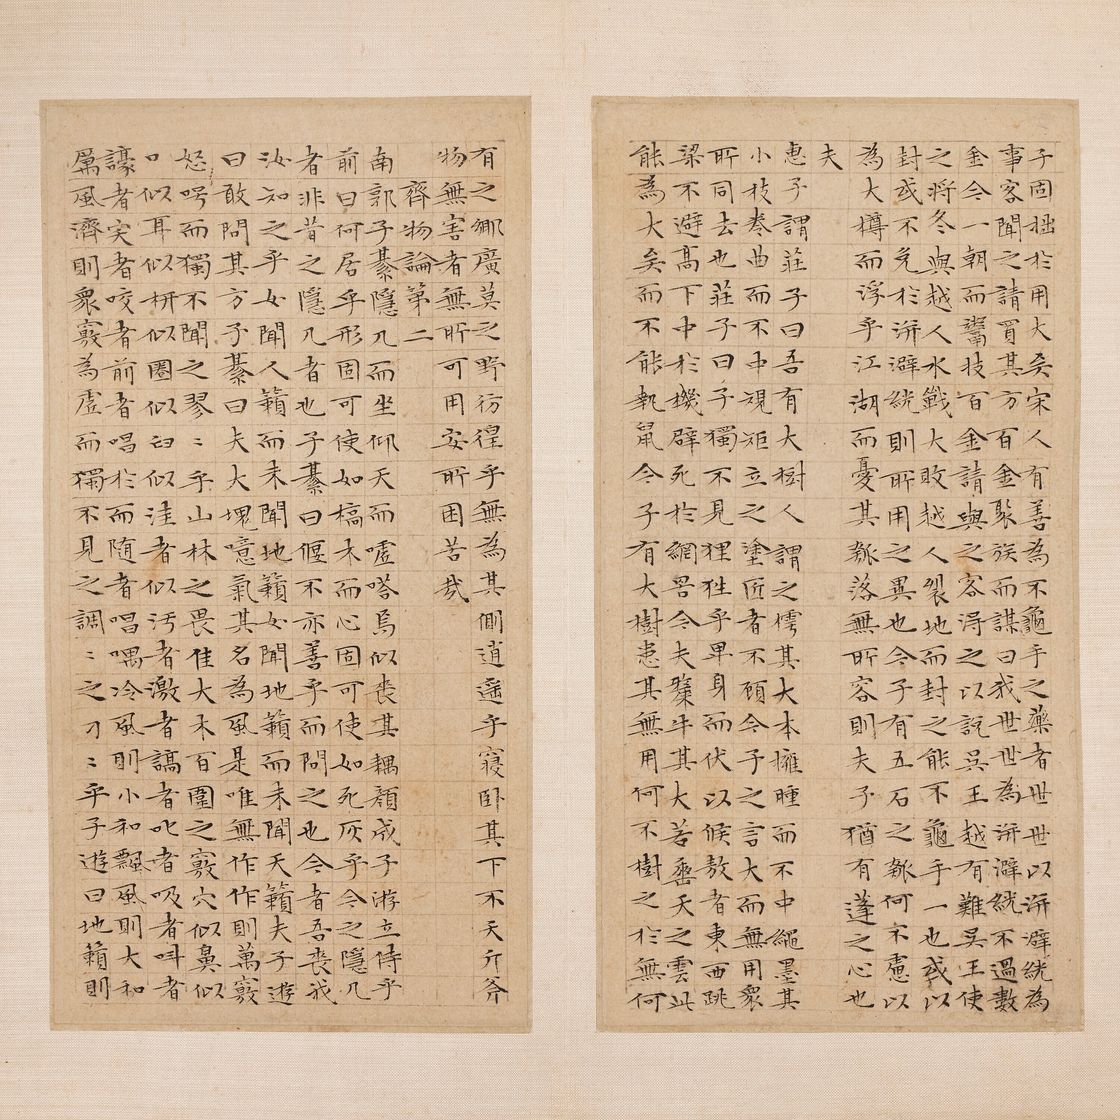 子固拙於用大矣宋人有善為不龜手之藥者世世以洴澼絖為
事客聞之請買其方百金聚族而謀曰我世世為洴澼絖不過數
金今一朝而鬻技百金請與之客得之以說吳王越有難吳王使
之將冬與越人水戰大敗越人裂地而封之能不龜手一也或以
封或不免於洴澼絖則所用之異也今子有五石之瓠何不慮以
為大樽而浮乎江湖而憂其瓠落無所容則夫子猶有蓬之心也
夫
惠子謂莊子曰吾有大樹人謂之樗其大本擁腫而不中繩墨其
小枝卷曲而不中規矩立之塗匠者不顧今子之言大而無用眾
所同去也莊子曰子獨不見狸狌乎卑身而伏以候敖者東西跳
梁不避高下中於機辟死於網罟今夫斄牛其大若垂天之雲此
能為大矣而不能執鼠今子有大樹患其無用何不樹之於無何
有之鄉廣莫之野彷徨乎無為其側逍遙乎寢臥其下不夭斤斧
物無害者無所可用安所困苦哉
齊物論第二
南郭子綦隱几而坐仰天而噓嗒焉似喪其耦顏成子游立侍乎
前曰何居乎形固可使如槁木而心固可使如死灰乎今之隱几
者非昔之隱几者也子綦曰偃不亦善乎而問之也今者吾喪我
汝知之乎女聞人籟而未聞地籟女聞地籟而未聞天籟夫子遊
曰敢問其方子綦曰夫大塊噫氣其名為風是唯無作作則萬竅
怒呺而獨不聞之翏〻乎山林之畏隹大木百圍之竅穴似鼻似
口似耳似枅似圈似臼似洼者似污者激者謞者叱者吸者叫者
譹者宎者咬者前者唱於而隨者唱喁冷風則小和飄風則大和
厲風濟則眾竅為虛而獨不見之調〻之刁〻乎子遊曰地籟則